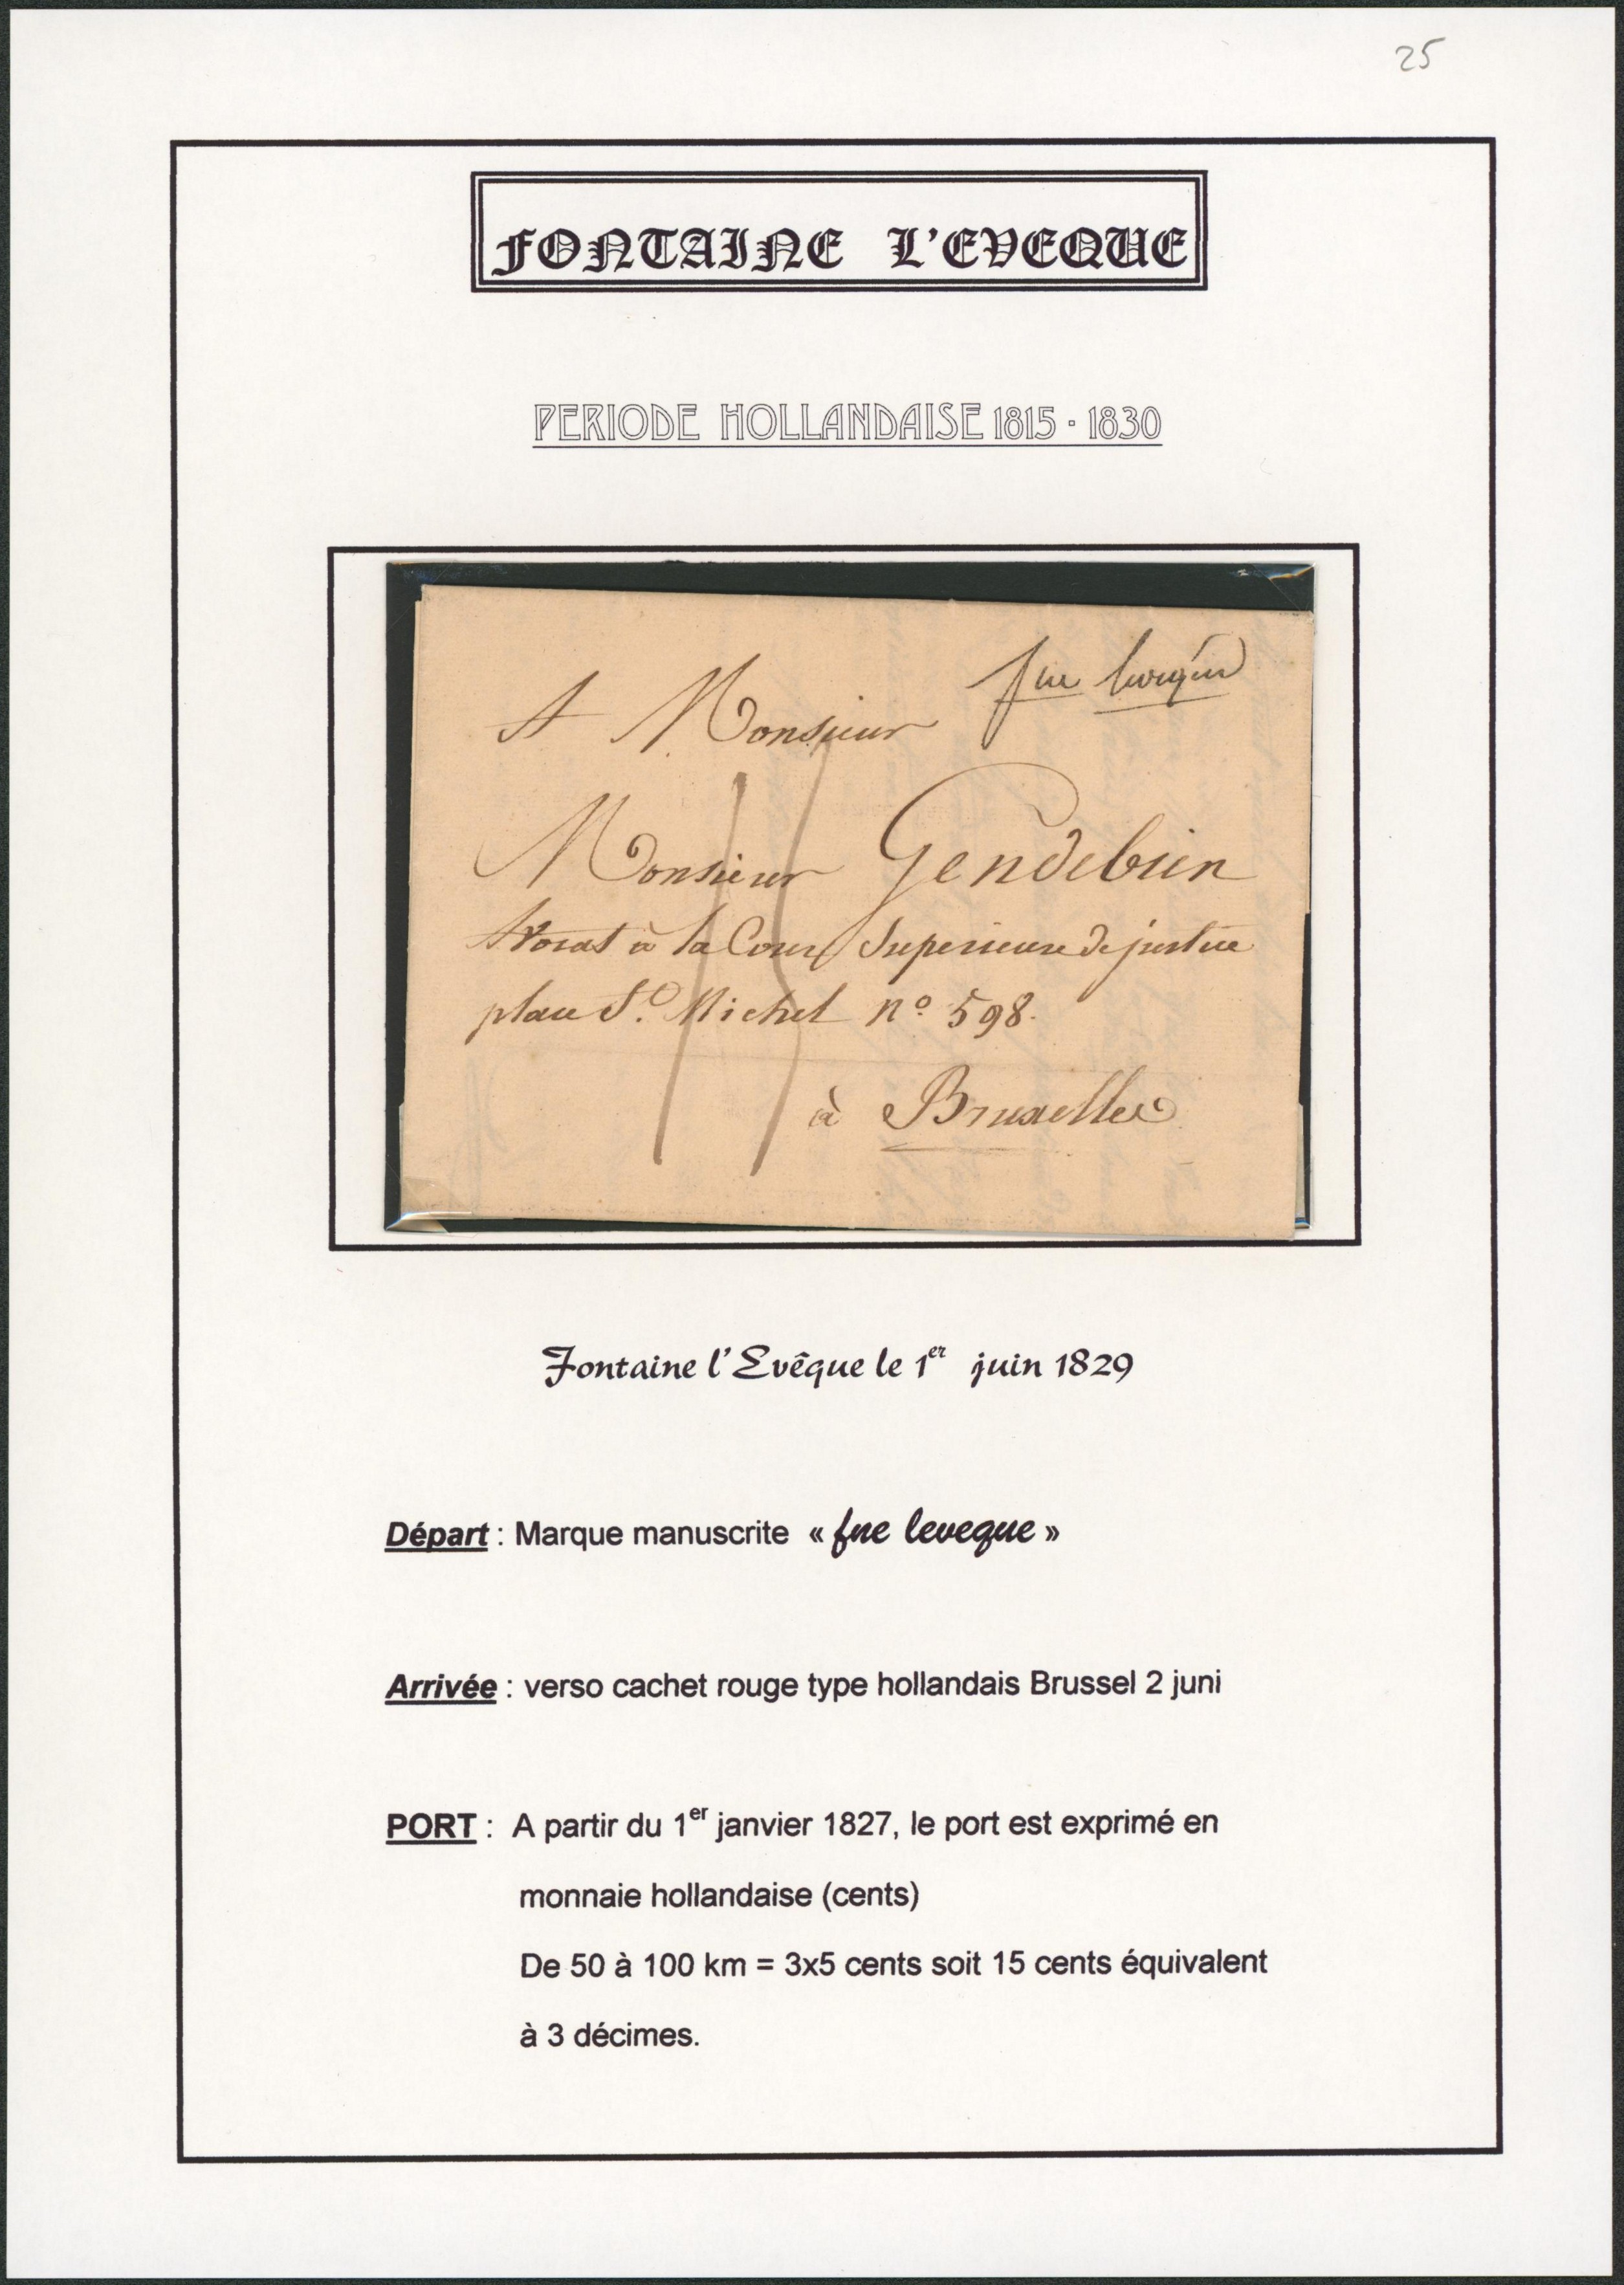 25
FONTAINE L'EVEQUE
PERIODE HOLLANDAISE 1815 - 1830
fne leveque
A Monsieur
Monsieur Gendebien
Avocat à la Cour Superieure de justice
place St. Michel n° 598.
à Bruxelles
15
Fontaine l'Evêque le 1er juin 1829
Départ : Marque manuscrite « fne leveque »
Arrivée : verso cachet rouge type hollandais Brussel 2 juni
PORT : A partir du 1er janvier 1827, le port est exprimé en
monnaie hollandaise (cents)
De 50 à 100 km = 3x5 cents soit 15 cents équivalent
à 3 décimes.